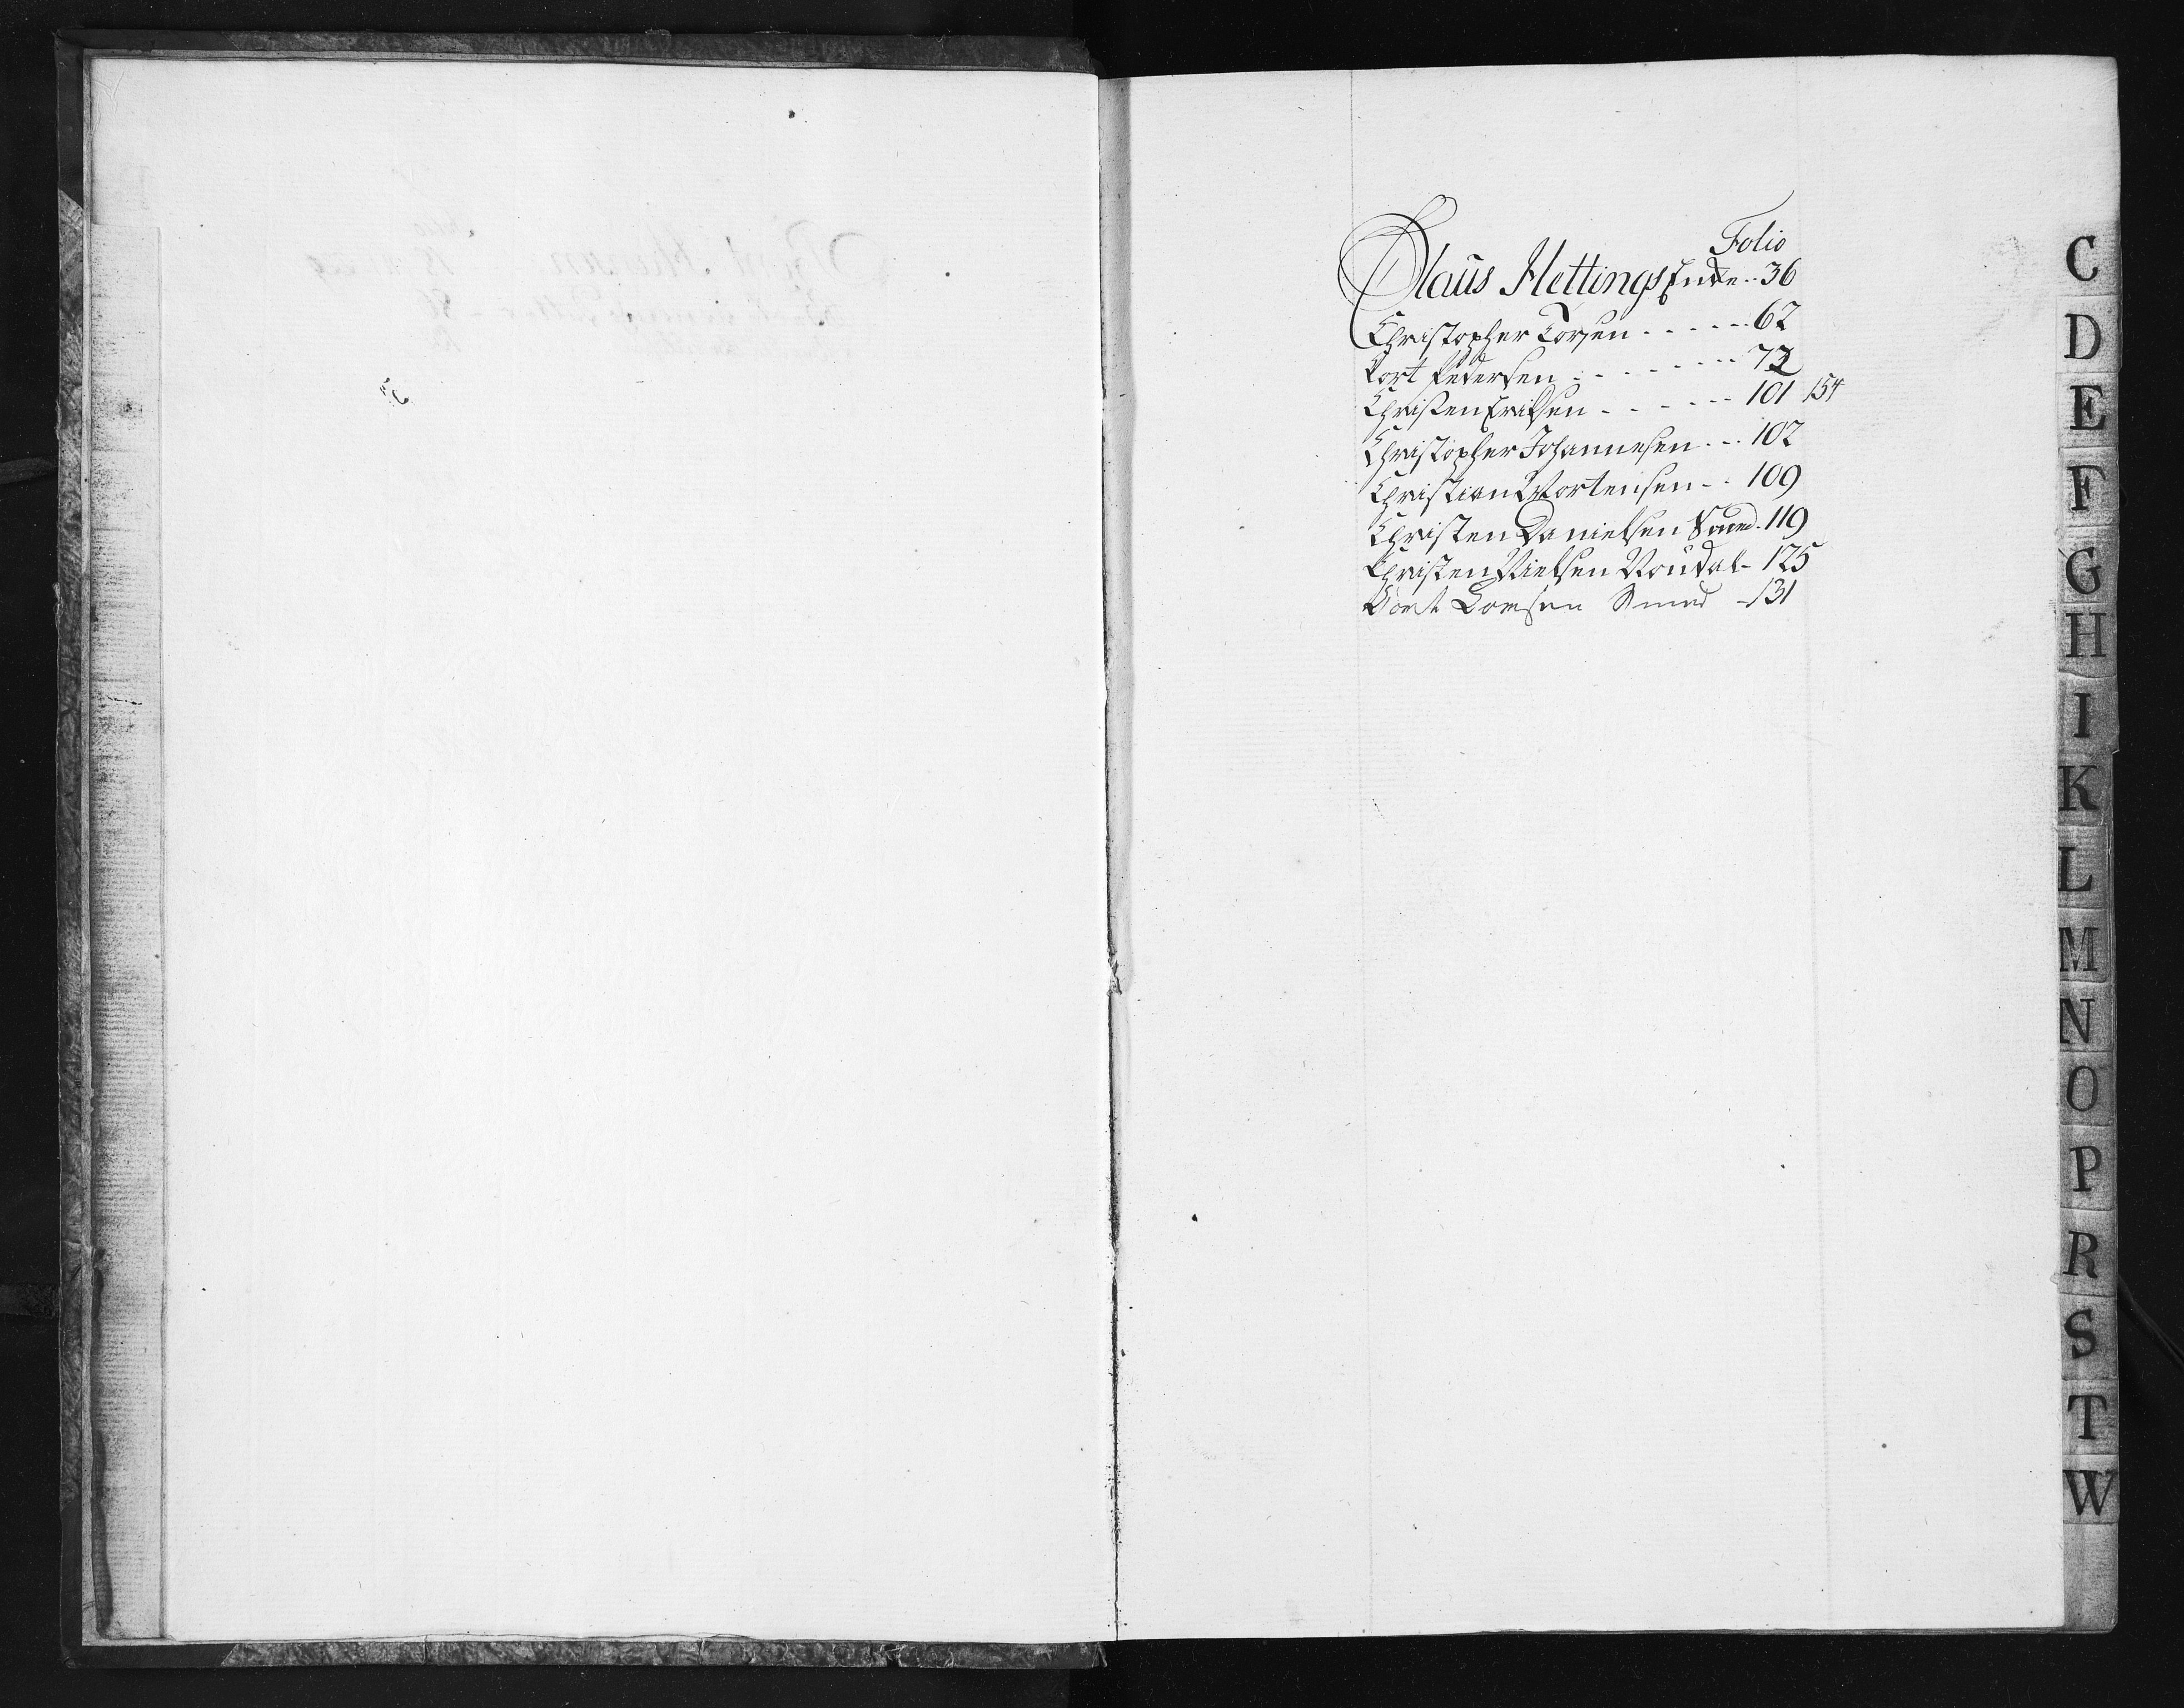 Folio
Claus Hettings Enke .. 36
Christopher Torsen - - - - - - 62
Cort Pedersen - - - - - - - 72
Christen Eriksen - - - - - - 101 154
Christopher Johannesen - - - 102
Christian Mortensen - - 109
Christen Danielsen Smed. 119
Christen Nielsen Roudal - 125
Cort Smed - 131
C
D
E
F
G
H
I
K
L
M
N
O
P
R
S
T
W